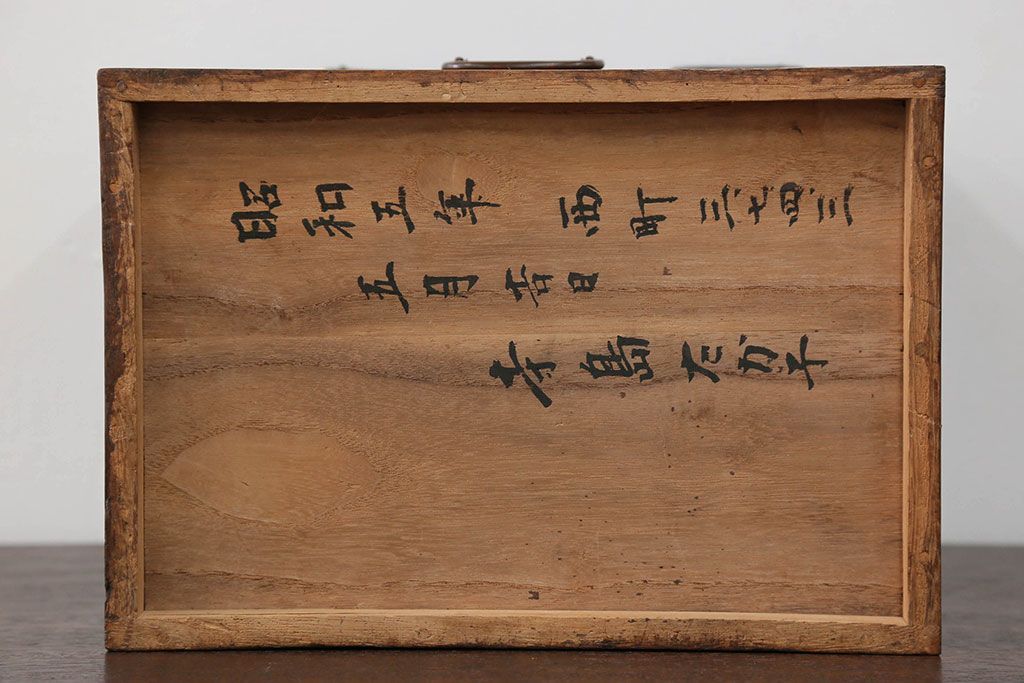 昭和五年 西町三七四三
五月吉日
寺島たか子